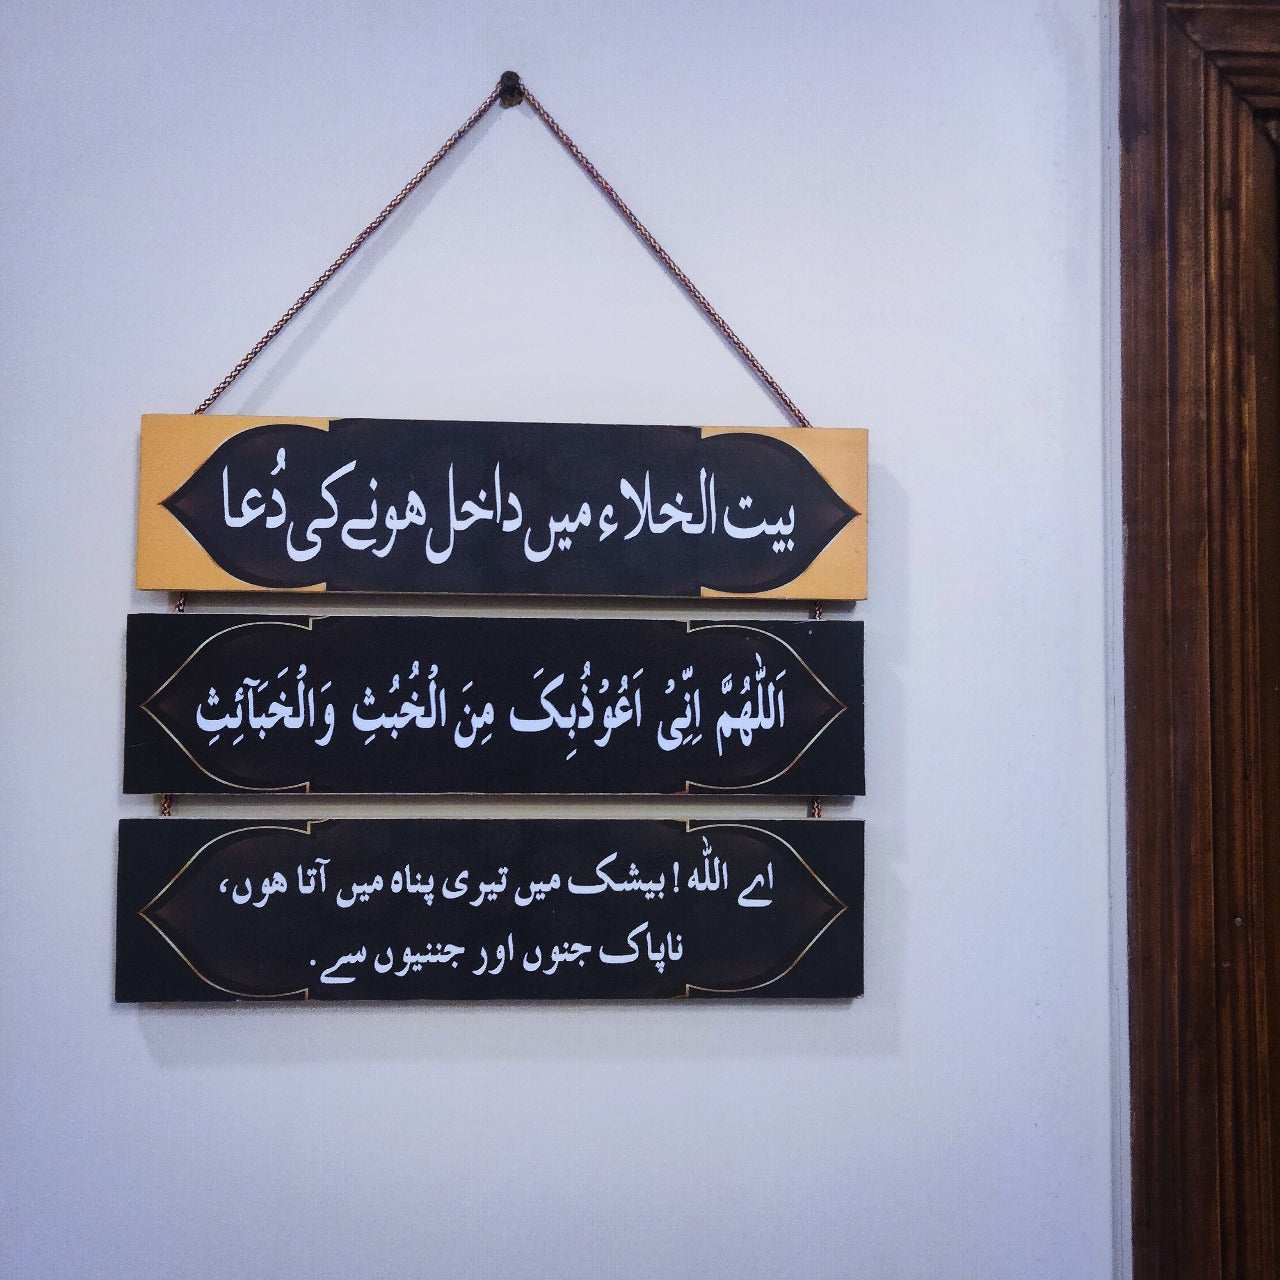 بیت الخلاء میں داخل ہونے کی دُعا
اَللّٰهُمَّ اِنِّیْ اَعُوْذُبِکَ مِنَ الْخُبُثِ وَالْخَبَآئِثِ
اے اللّٰہ! بیشک میں تیری پناہ میں آتا ہوں،
ناپاک جنوں اور جننیوں سے.